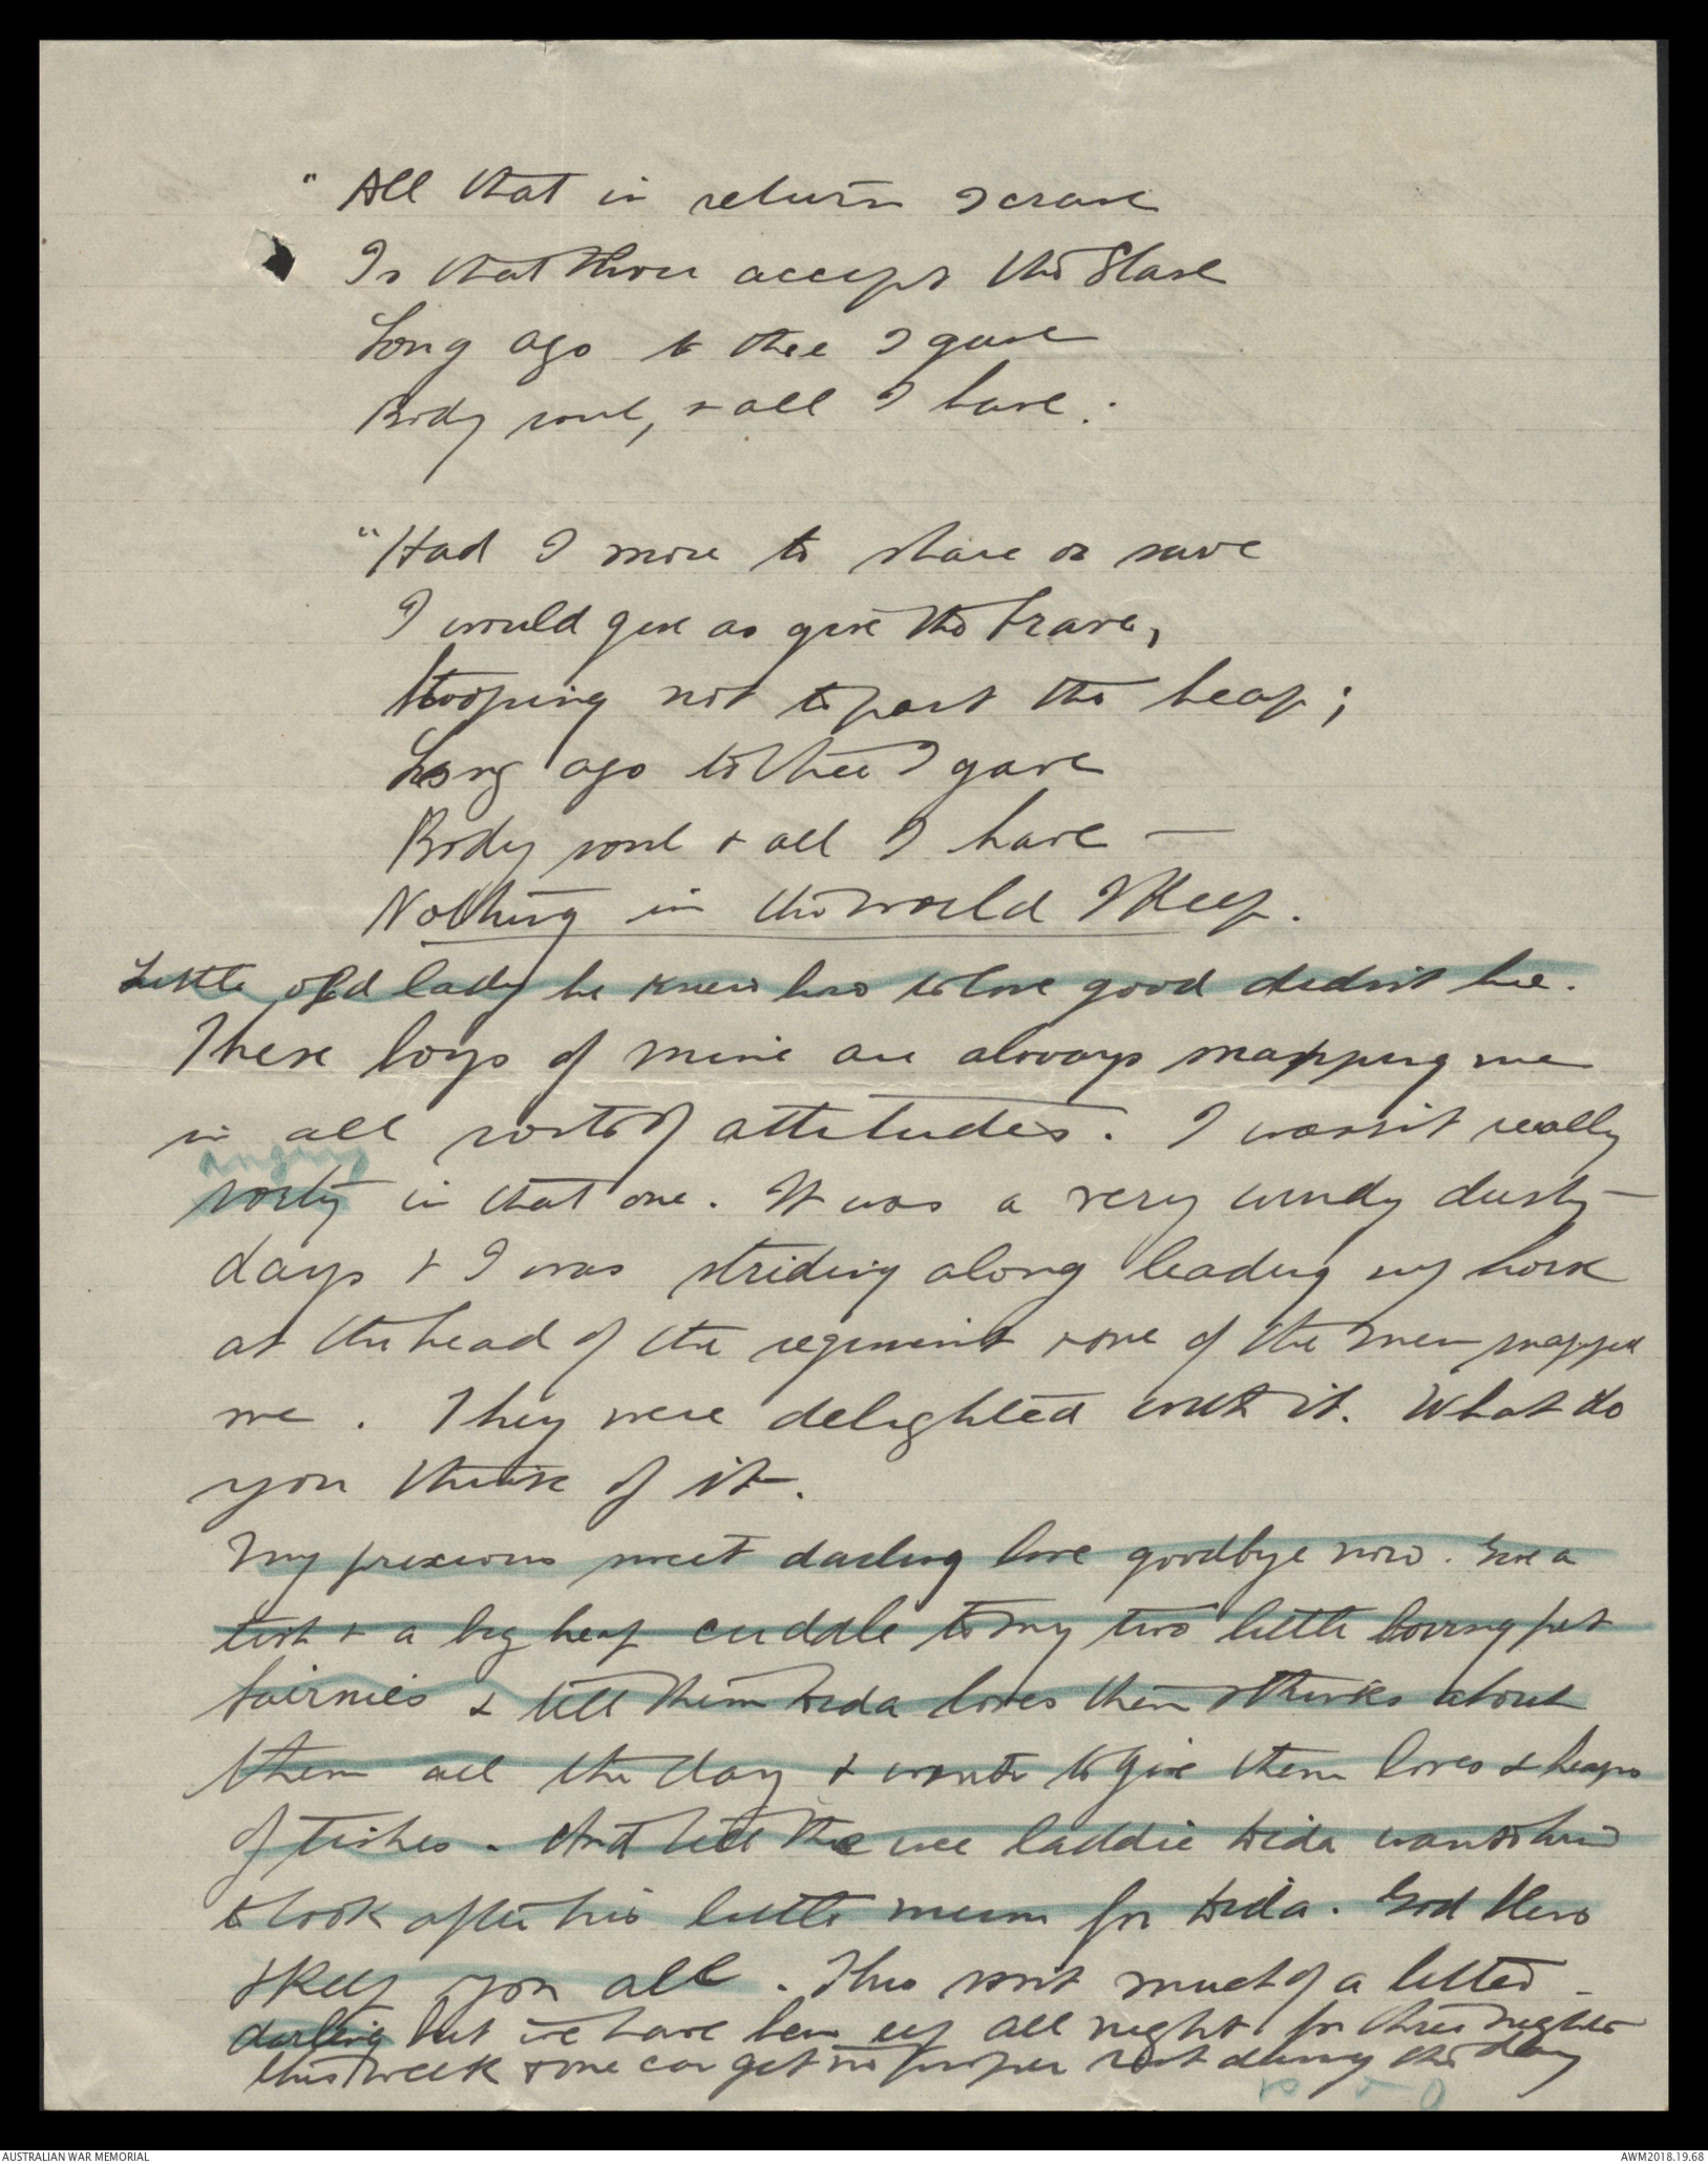 " All that in return I crave
Is that thou accept the Slave
Long ago to thee I gave
Body soul, & all I have.
"Had I more to share or save
I would give as give the brave,
Stooping not to part the heap;
Long ago to thee I gave
Body soul & all I have —
Nothing in the world I Keep.
Little old lady he knew how to love good didn't he.
These boys of mine are always snapping me
in all sorts of attitudes. I wasn't really
angry
in that one. It was a very windy dusty
days & I was striding along leading my horse
at the head of the regiment & one of the men snapped
me. They were delighted with it. What do
you think of it.
My precious sweet darling love goodbye now. Give a
tish & a big heap cuddle to my two little loving pet
fairnies & tell them dida loves them & thinks about
them all the day & wants to give them loves & heaps
of tishes. And tell the wee laddie dida wants him
to look after his little mum for dida. God bless
& Keep you all. This isn't much of a letter
darling but we have been up all night for three nights
this week & one can get no proper rest during the day
AUSTRALIAN WAR MEMORIAL
AWM2018.19.68